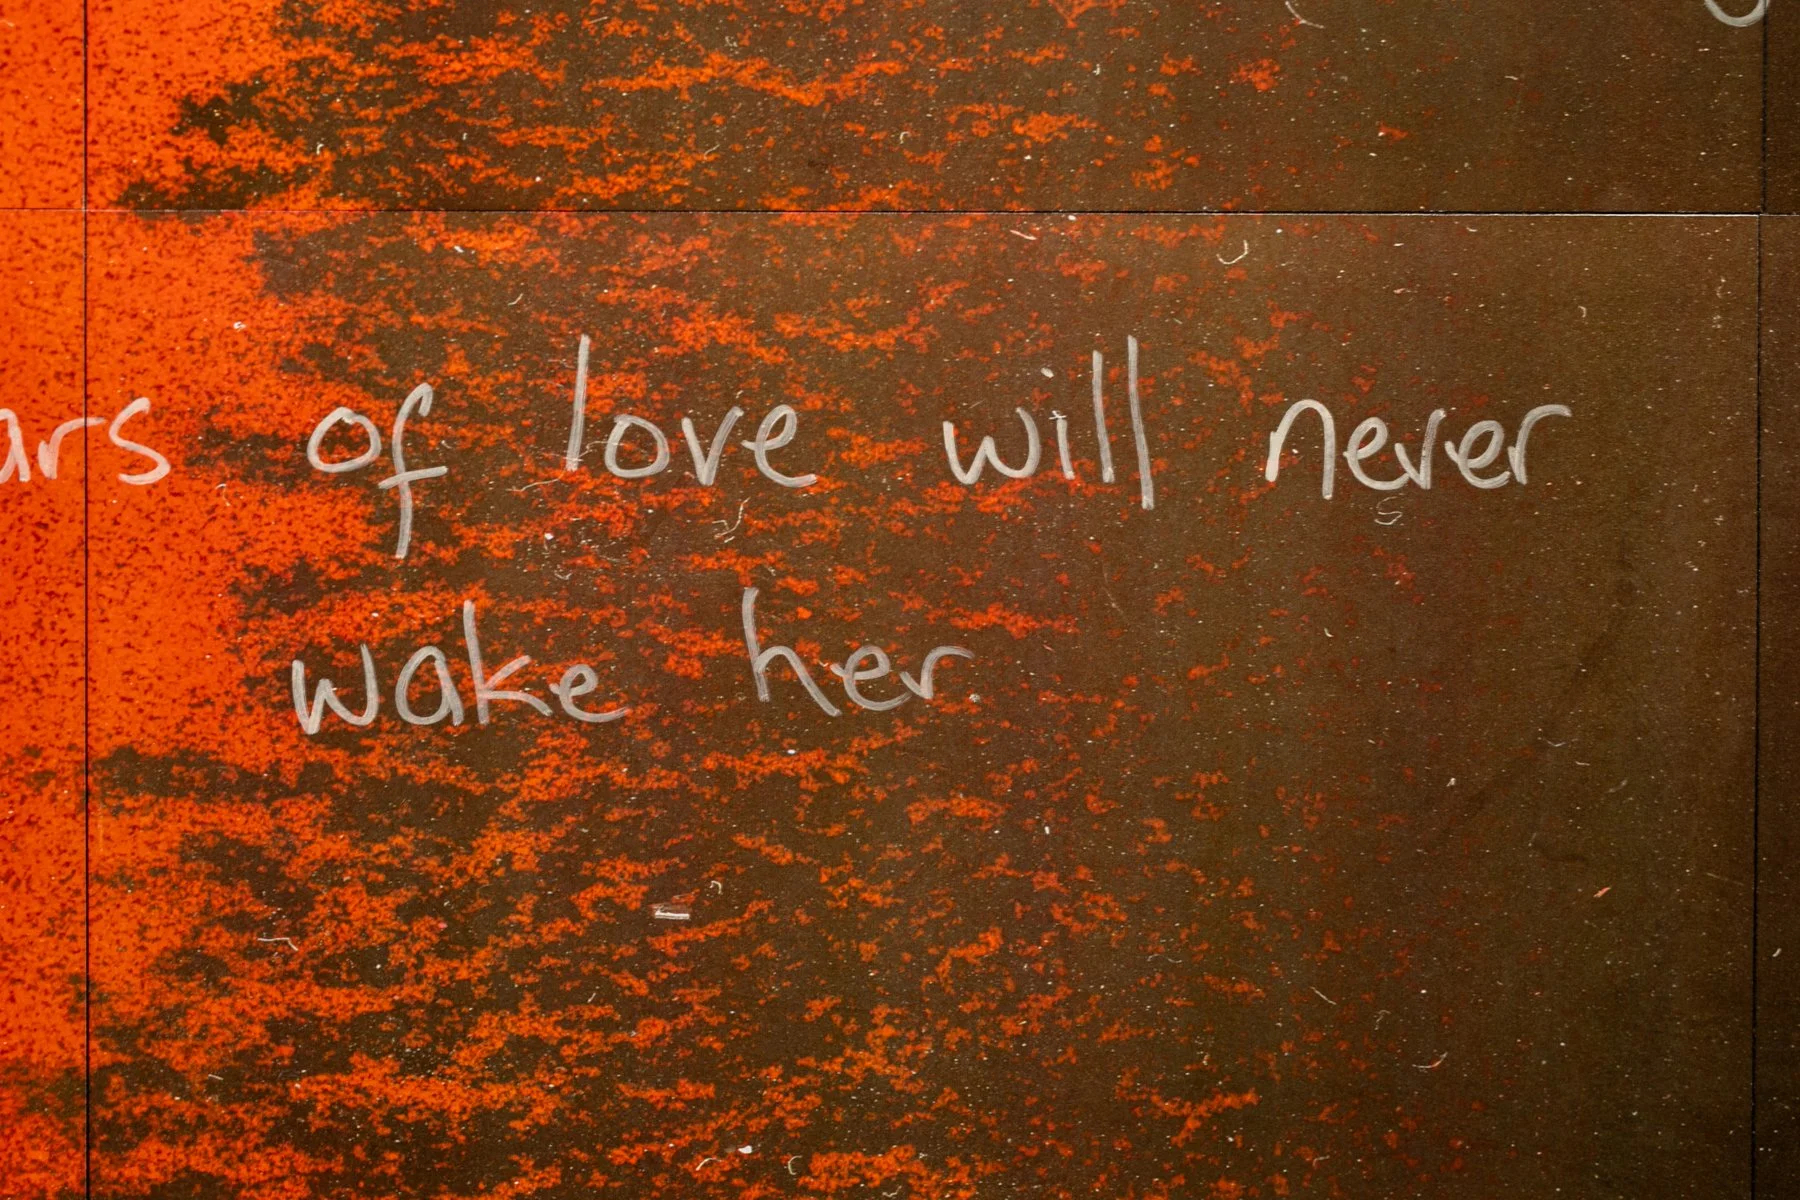 ars of love will never
wake her